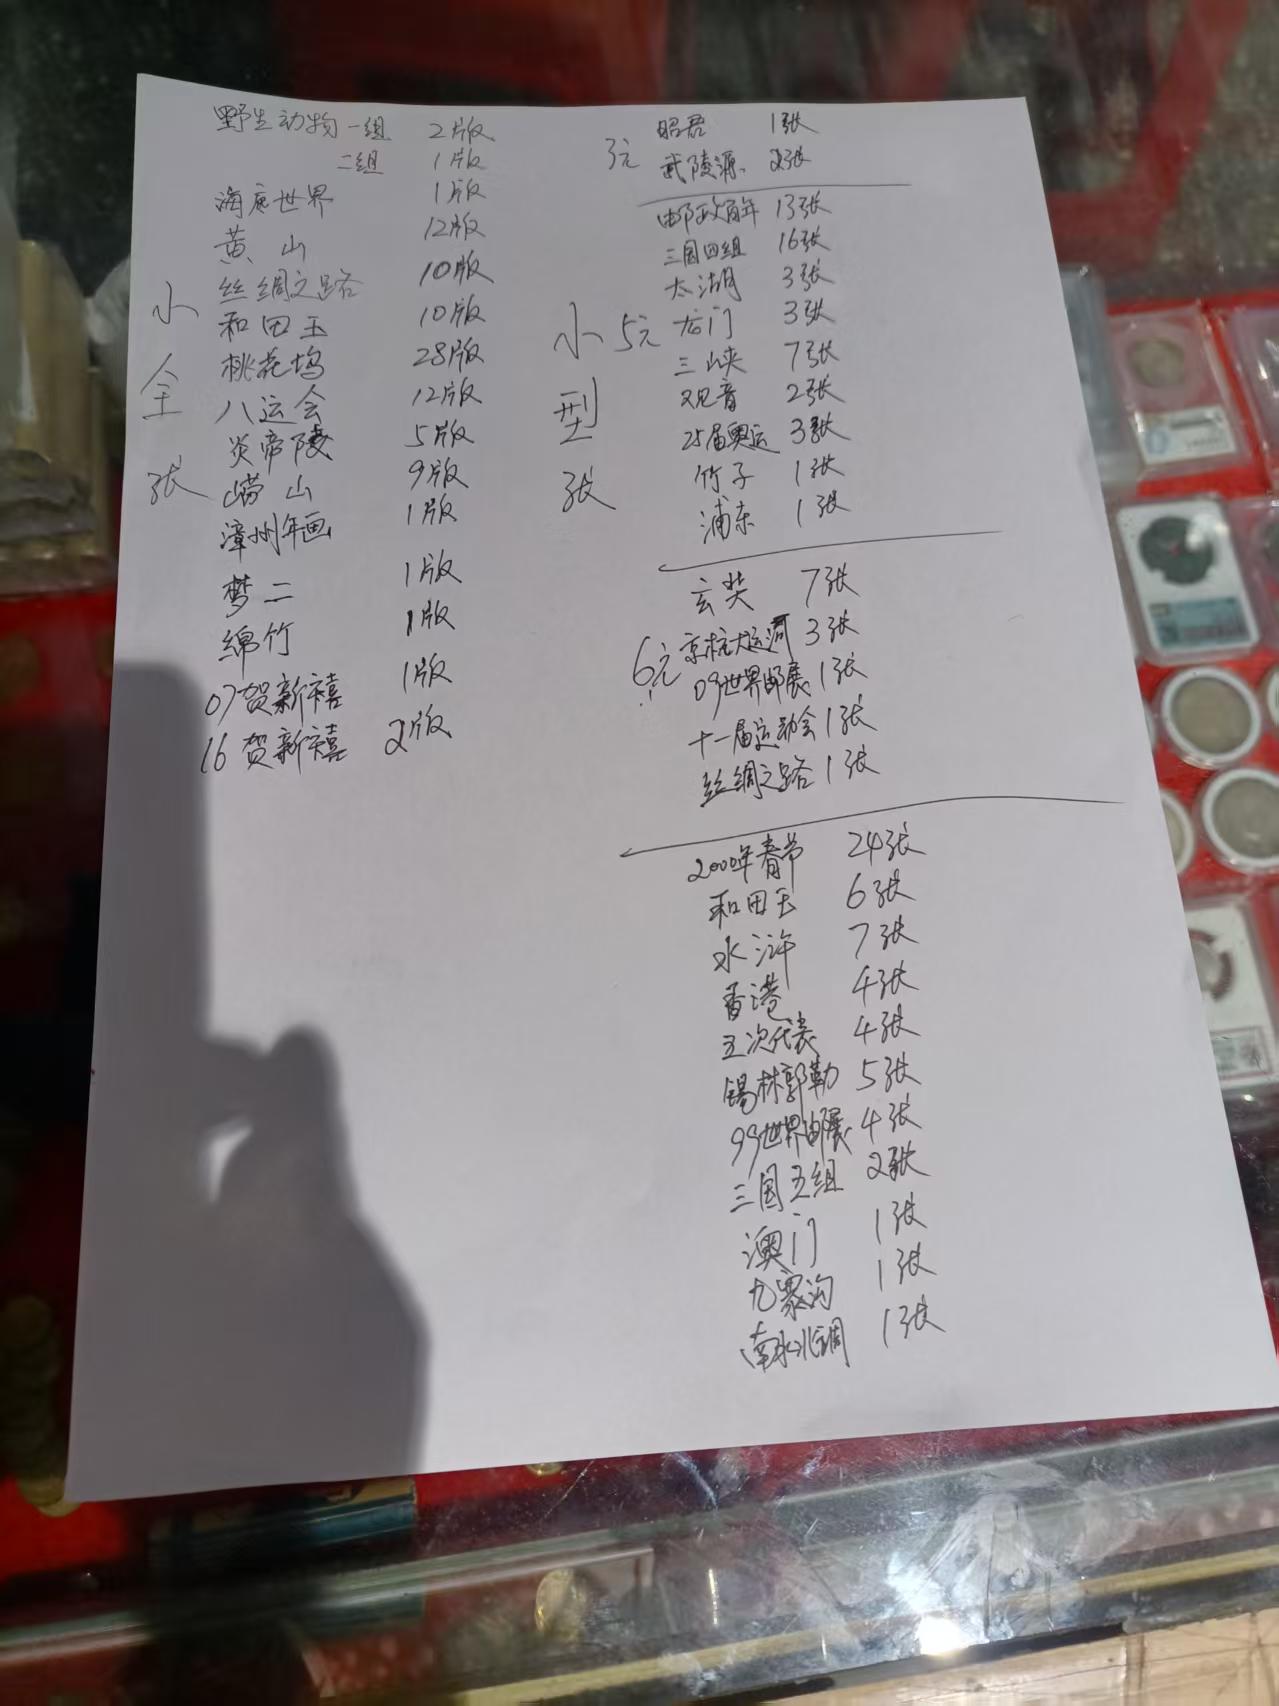 小全张
野生动物一组 2版
二组 1版
海底世界 1版
黄山 12版
丝绸之路 10版
和田玉 10版
桃花坞 28版
八运会 12版
炎帝陵 5版
崂山 9版
漳州年画 1版
梦二 1版
绵竹 1版
07贺新禧 1版
16贺新禧 2版
小型张
3元
昭君 1张
武陵源 2张
5元
邮政百年 13张
三国四组 16张
太湖 3张
龙门 3张
三峡 7张
观音 2张
25届奥运 3张
竹子 1张
浦东 1张
6元
玄奘 7张
京杭大运河 3张
09世界邮展 1张
十一届运动会 1张
丝绸之路 1张
2000年春节 24张
和田玉 6张
水浒 7张
香港 4张
五次代表 4张
锡林郭勒 5张
99世界邮展 4张
三国五组 2张
澳门 1张
九寨沟 1张
南水北调 1张